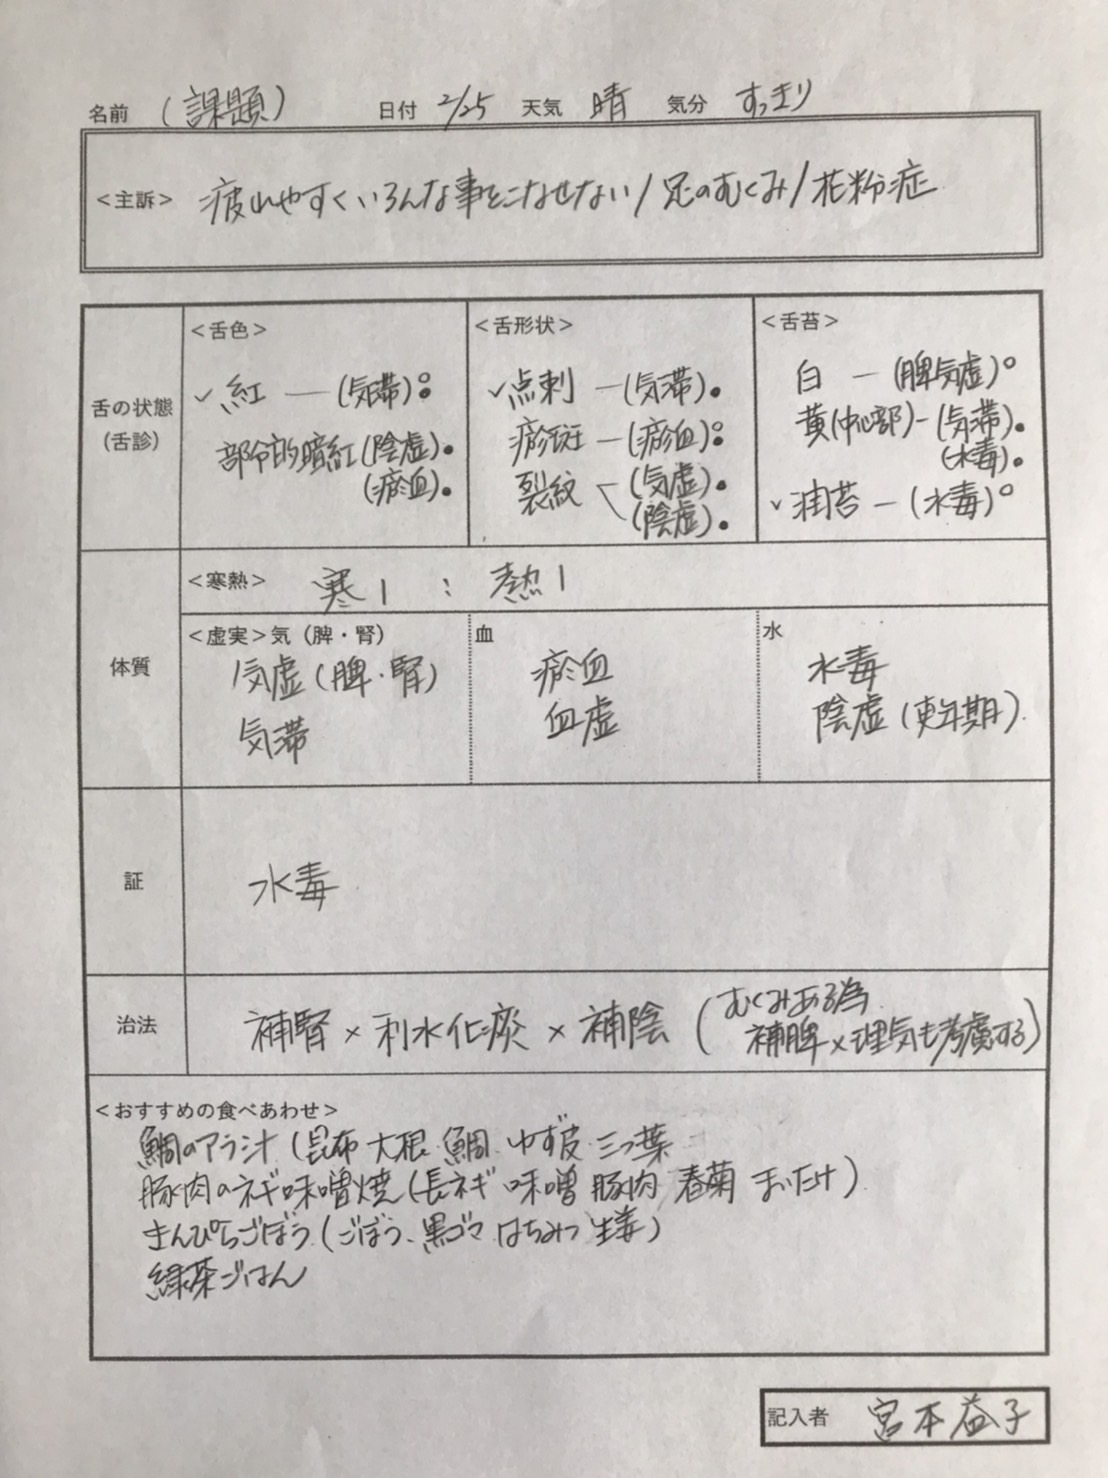 名前 (課題) 日付 2/25 天気 晴 気分 すっきり
<主訴> 疲れやすくいろんな事をこなせない/足のむくみ/花粉症
舌の状態
(舌診)
<舌色>
✓紅 ― (気滞)
部分的暗紅(陰虚)
(瘀血)
<舌形状>
✓点刺 ― (気滞)
瘀斑 ― (瘀血)
裂紋 (気虚)
(陰虚)
<舌苔>
白 ― (脾気虚)
黄(中心部)-(気滞)
(水毒)
✓滑苔 ― (水毒)
体質
<寒熱> 寒1 : 熱1
<虚実>気(脾・腎)
気虚(脾・腎)
気滞
血
瘀血
血虚
水
水毒
陰虚(更年期)
証
水毒
治法
補腎×利水化痰×補陰 (むくみある為
補脾×理気も考慮する)
<おすすめの食べあわせ>
鯛のアラ汁(昆布 大根 鯛 ゆず皮 三つ葉
豚肉のネギ味噌焼(長ネギ 味噌 豚肉 春菊 まいたけ)
きんぴらごぼう(ごぼう、黒ゴマ はちみつ 生姜)
緑茶ごはん
記入者 宮本益子